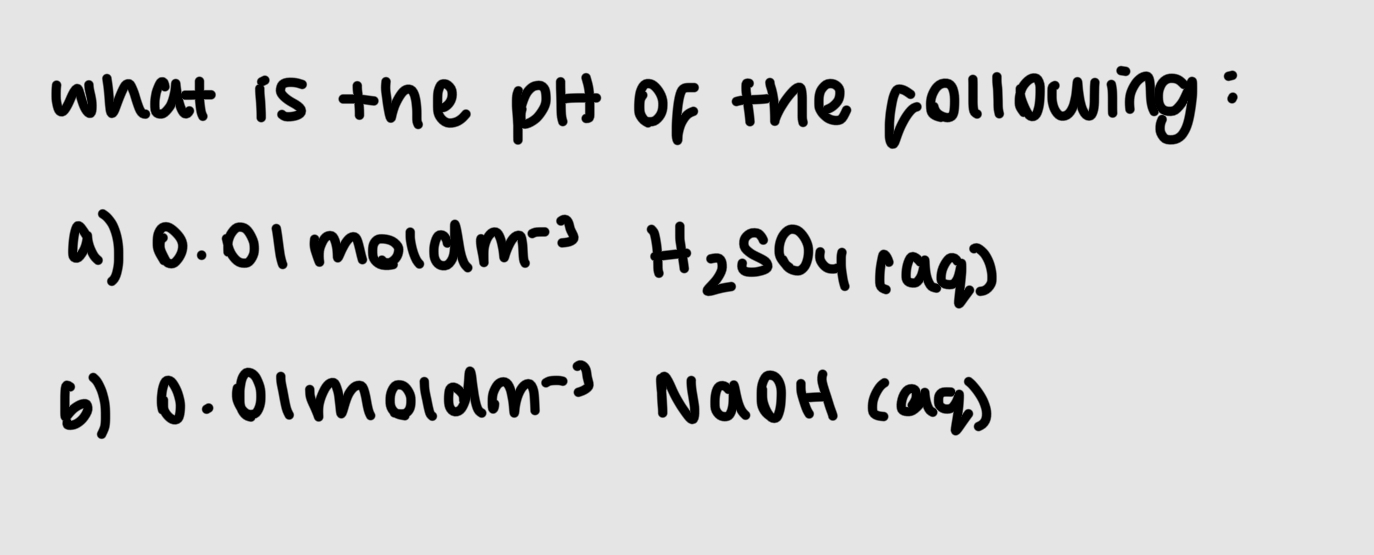 what is the pH of the following:
a) 0.01 moldm⁻³ H₂SO₄ (aq)
b) 0.01 moldm⁻³ NaOH (aq)